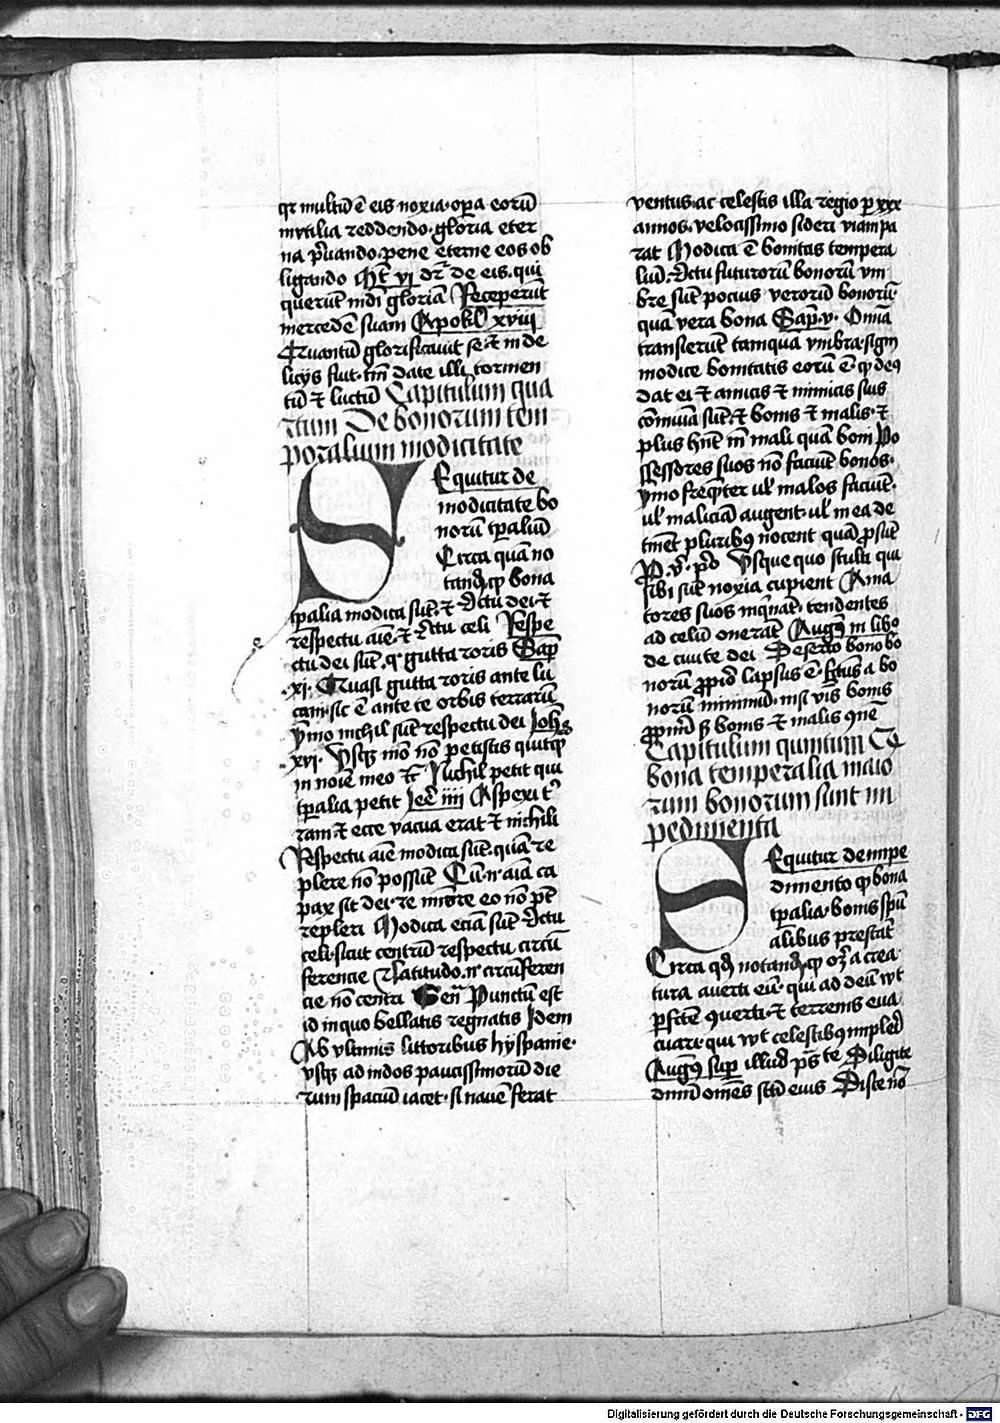 qr multū ē eis noxia · oꝑa eorū
inutilia reddendo · gloria eter
na p̄uando · pene eterne eos ob
ligando Mt̄ vj dr̄ de eis · qui
querūt mūdi gloriā Receperūt
mercedē suam Apokl̄ xviij
Quantū glorificauit se · ⁊ in de
licijs fuit · tm̄ date illi tormen
tū ⁊ luctū Capitulum qua
rtum De bonorum tem
poralium modicitate
Sequitur de
modicitate bo
norū tꝑaliū
Circa quā no
tand · ꝙ bona
tꝑalia modica sūt · ⁊ rꝭctu dei · ⁊
respectu aīe · ⁊ rꝭctu celi Respe
ctu dei sūt · qͥ gutta roris Sap̄
xj · Quasi gutta roris ante lu
cani · sic ē ante te orbis terrarū
ymo nichil sūt respectu dei Joh̄s
xvj · Vsqꝫ mō nō petistis quitqͣ
in noīe meo ⁊c̄ Nichil petit qui
tꝑalia petit Jer̄ iiij Aspexi t̉
ram ⁊ ecce vacua erat ⁊ nichili
Respectu aīe modica sūt · quā re
plere nō possūt Cū · n̄ · aīa ca
pax sit dei · re mīore eo nō pt̄
repleri Modica eciā sūt rꝭctu
celi · sicut centrū respectu circū
ferencie Latitudo · n̄ · circūferen
cie nō centri Sen̄ Punctum est
id in quo bellatis regnatis Idem
Ab vltimis littoribus hyspanie ·
vsqꝫ ad indos paucissimorū die
rum spaciū iacet · si nauē ferat
ventus · ac celestis illa regio ꝑ xxx
annos · velocissimo sideri viam pa
rat Modica ē bonitas tempera
liū · rꝭctu futurorū bonorū vm
bre sūt pocius verorū bonorū ·
quā vera bona Sap̄ · v · Omīa
transierūt tamquā vmbra · sign
modice bonitatis eorū ē · ꝙ deꝰ
dat ei ⁊ amicis ⁊ inimicis suis
cōmūia sūt · ⁊ bonis ⁊ malis · ⁊
plus hn̄t in̄ mali quā boni Po
ssessores suos nō faciūt bonos ·
ymo freqn̄ter ul̓ malos faciūt ·
ul̓ maliciā augent · ul̓ mea de
tm̄et pluribꝰ nocent quā ꝓsūt
P · v̄ · pͦ Vsque quo stulti qui
sibi sūt noxia cupient Ama
tores suos inqͥnāt · tendentes
ad celū onerāt Augꝰ in libͦ
de ciuite dei Deserto bono bo
norū ꝓpͥo lapsus ē · hꝭtus a bo
norū minimū · nisi vis bonis
ꝓpͥm̄ qꝫ bonis · ⁊ malis ꝯuē
Capitulum quintum Cꝙ
bona temperalia maio
rum bonorum sunt im
pedimenta
Sequitur de impe
dimento ꝙ bona
tꝑalia · bonis spū
alibus prestāt
Circa qd notand · ꝙ oꝫ a crea
tura auerti eū · qui ad deū vt
ꝑfcte ꝯuerti · ⁊ terrenis eua
cuari · qui vt celestibꝰ impleri
Augꝰ suꝑ illud ps̄ te Diligite
dnm̄ omēs scti eius Disce nō